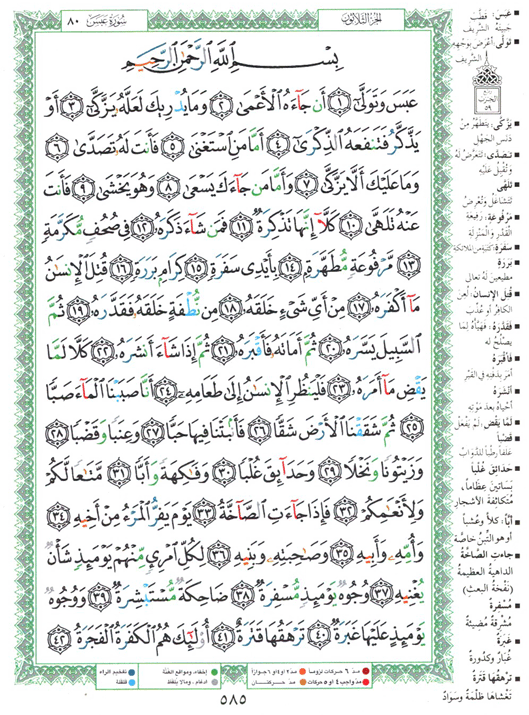 سُورَةُ عَبَسَ ٨٠
الجُزءُ الثَّلَاثُونَ
بِسْمِ ٱللَّهِ ٱلرَّحْمَٰنِ ٱلرَّحِيمِ
عَبَسَ وَتَوَلَّىٰٓ ١ أَن جَآءَهُ ٱلْأَعْمَىٰ ٢ وَمَا يُدْرِيكَ لَعَلَّهُۥ يَزَّكَّىٰٓ ٣ أَوْ
يَذَّكَّرُ فَتَنفَعَهُ ٱلذِّكْرَىٰٓ ٤ أَمَّا مَنِ ٱسْتَغْنَىٰ ٥ فَأَنتَ لَهُۥ تَصَدَّىٰ ٦
وَمَا عَلَيْكَ أَلَّا يَزَّكَّىٰ ٧ وَأَمَّا مَن جَآءَكَ يَسْعَىٰ ٨ وَهُوَ يَخْشَىٰ ٩ فَأَنتَ
عَنْهُ تَلَهَّىٰ ١٠ كَلَّآ إِنَّهَا تَذْكِرَةٌ ١١ فَمَن شَآءَ ذَكَرَهُۥ ١٢ فِى صُحُفٍ مُّكَرَّمَةٍ
١٣ مَّرْفُوعَةٍ مُّطَهَّرَةٍۭ ١٤ بِأَيْدِى سَفَرَةٍ ١٥ كِرَامٍۭ بَرَرَةٍ ١٦ قُتِلَ ٱلْإِنسَٰنُ
مَآ أَكْفَرَهُۥ ١٧ مِنْ أَىِّ شَىْءٍ خَلَقَهُۥ ١٨ مِن نُّطْفَةٍ خَلَقَهُۥ فَقَدَّرَهُۥ ١٩ ثُمَّ
ٱلسَّبِيلَ يَسَّرَهُۥ ٢٠ ثُمَّ أَمَاتَهُۥ فَأَقْبَرَهُۥ ٢١ ثُمَّ إِذَا شَآءَ أَنشَرَهُۥ ٢٢ كَلَّا لَمَّا
يَقْضِ مَآ أَمَرَهُۥ ٢٣ فَلْيَنظُرِ ٱلْإِنسَٰنُ إِلَىٰ طَعَامِهِۦٓ ٢٤ أَنَّا صَبَبْنَا ٱلْمَآءَ صَبًّا
٢٥ ثُمَّ شَقَقْنَا ٱلْأَرْضَ شَقًّا ٢٦ فَأَنۢبَتْنَا فِيهَا حَبًّا ٢٧ وَعِنَبًا وَقَضْبًا ٢٨
وَزَيْتُونًا وَنَخْلًا ٢٩ وَحَدَآئِقَ غُلْبًا ٣٠ وَفَٰكِهَةً وَأَبًّا ٣١ مَّتَٰعًا لَّكُمْ
وَلِأَنْعَٰمِكُمْ ٣٢ فَإِذَا جَآءَتِ ٱلصَّآخَّةُ ٣٣ يَوْمَ يَفِرُّ ٱلْمَرْءُ مِنْ أَخِيهِ ٣٤
وَأُمِّهِۦ وَأَبِيهِ ٣٥ وَصَٰحِبَتِهِۦ وَبَنِيهِ ٣٦ لِكُلِّ ٱمْرِئٍ مِّنْهُمْ يَوْمَئِذٍ شَأْنٌ
يُغْنِيهِ ٣٧ وُجُوهٌ يَوْمَئِذٍ مُّسْفِرَةٌ ٣٨ ضَاحِكَةٌ مُّسْتَبْشِرَةٌ ٣٩ وَوُجُوهٌ
يَوْمَئِذٍ عَلَيْهَا غَبَرَةٌ ٤٠ تَرْهَقُهَا قَتَرَةٌ ٤١ أُو۟لَٰٓئِكَ هُمُ ٱلْكَفَرَةُ ٱلْفَجَرَةُ ٤٢
عَبَسَ: قَطَّبَ
جَبِينَهُ الشَّرِيفَ
تَوَلَّى: أَعْرَضَ بِوَجْهِهِ
الشَّرِيفِ
الحِزْبُ
٥٩
يَزَّكَّى: يَتَطَهَّرُ مِنْ
دَنَسِ الجَهْلِ
تَصَدَّى: تَتَعَرَّضُ لَهُ
وَتُقْبِلُ عَلَيْهِ
تَلَهَّى:
تَتَشَاغَلُ وَتُعْرِضُ
مَرْفُوعَةٍ: رَفِيعَةِ
القَدْرِ وَالمَنْزِلَةِ
سَفَرَةٍ: كَتَبَةٍ مِنَ المَلَائِكَةِ
بَرَرَةٍ:
مُطِيعِينَ لَهُ تَعَالَى
قُتِلَ الإِنْسَانُ: لُعِنَ
الكَافِرُ أَوْ عُذِّبَ
فَقَدَّرَهُ: فَهَيَّأَهُ لِمَا
يَصْلُحُ لَهُ
فَأَقْبَرَهُ:
أَمَرَ بِدَفْنِهِ فِي القَبْرِ
أَنْشَرَهُ:
أَحْيَاهُ بَعْدَ مَوْتِهِ
لَمَّا يَقْضِ: لَمْ يَفْعَلْ
قَضْبًا:
عَلَفًا رَطْبًا لِلدَّوَابِّ
حَدَائِقَ غُلْبًا:
بَسَاتِينَ عِظَامًا،
مُتَكَاثِفَةَ الأَشْجَارِ
أَبًّا: كَلَأً وَعُشْبًا
أَوْ هُوَ التِّبْنُ خَاصَّةً
جَاءَتِ الصَّاخَّةُ:
الدَّاهِيَةُ العَظِيمَةُ
(نَفْخَةُ البَعْثِ)
مُسْفِرَةٌ:
مُشْرِقَةٌ مُضِيئَةٌ
غَبَرَةٌ:
غُبَارٌ وَكُدُورَةٌ
تَرْهَقُهَا قَتَرَةٌ:
تَغْشَاهَا ظُلْمَةٌ وَسَوَادٌ
مدّ ٦ حركات لزوماً مدّ ٢ او ٤ او ٦ جوازاً إخفاء، ومواقع الغُنَّة تفخيم الراء
مدّ واجب ٤ او ٥ حركات مدّ حركتان ادغام، وما لا يُلفظ قلقلة
٥٨٥